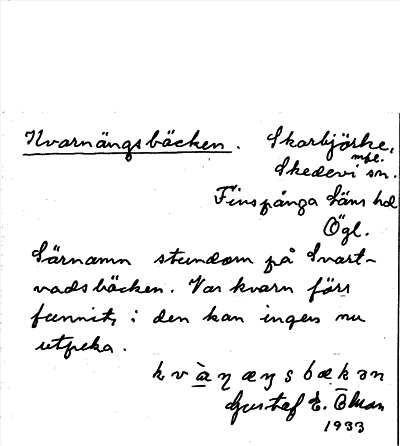 Kvarnängsbäcken. Skarbjörke,
mpl.
Skedevi sn.
Finspånga läns hd
Ögl.
Särnamn stundom på Svart-
vadsbäcken. Var kvarn förr
funnits i den kan ingen nu
utpeka.
Gustaf E. Öman
1933